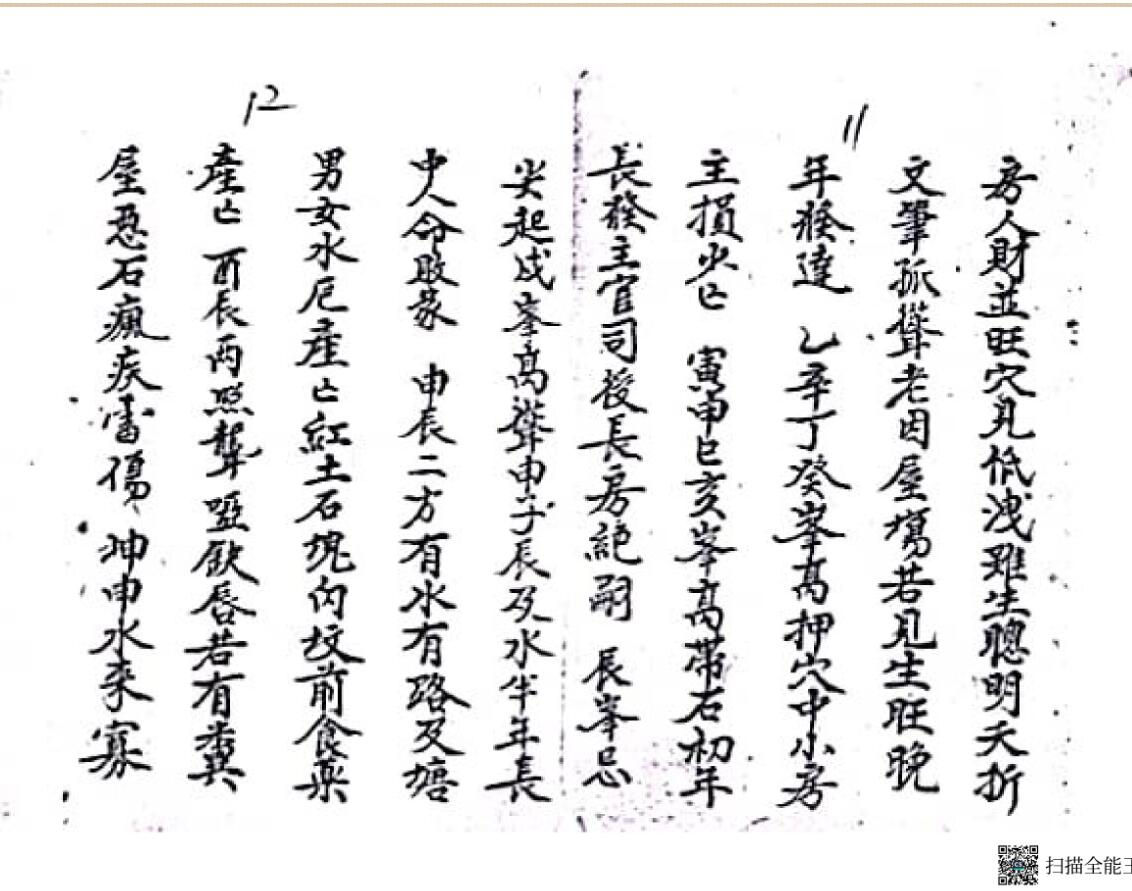 11
房人財並旺穴見低洩雖生聰明夭折
文筆孤聳老因屋場若見生旺晚
年發達 乙辛丁癸峯高押穴中小房
主損少亡 寅申巳亥峯高帶石初年
長發主官司授長房絕嗣 辰峯忌
12
尖起戌峯高聳申子辰及水半年長
中人命敗家 申辰二方有水有路及塘
男女水厄產亡紅土石塊內坟前食藥
產亡 酉辰兩照聾啞缺唇若有糞
屋惡石瘋疾雷傷 坤申水来寡
扫描全能王